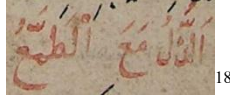 اَلذُّلُ مَعَ الْطَّمَعُ 18